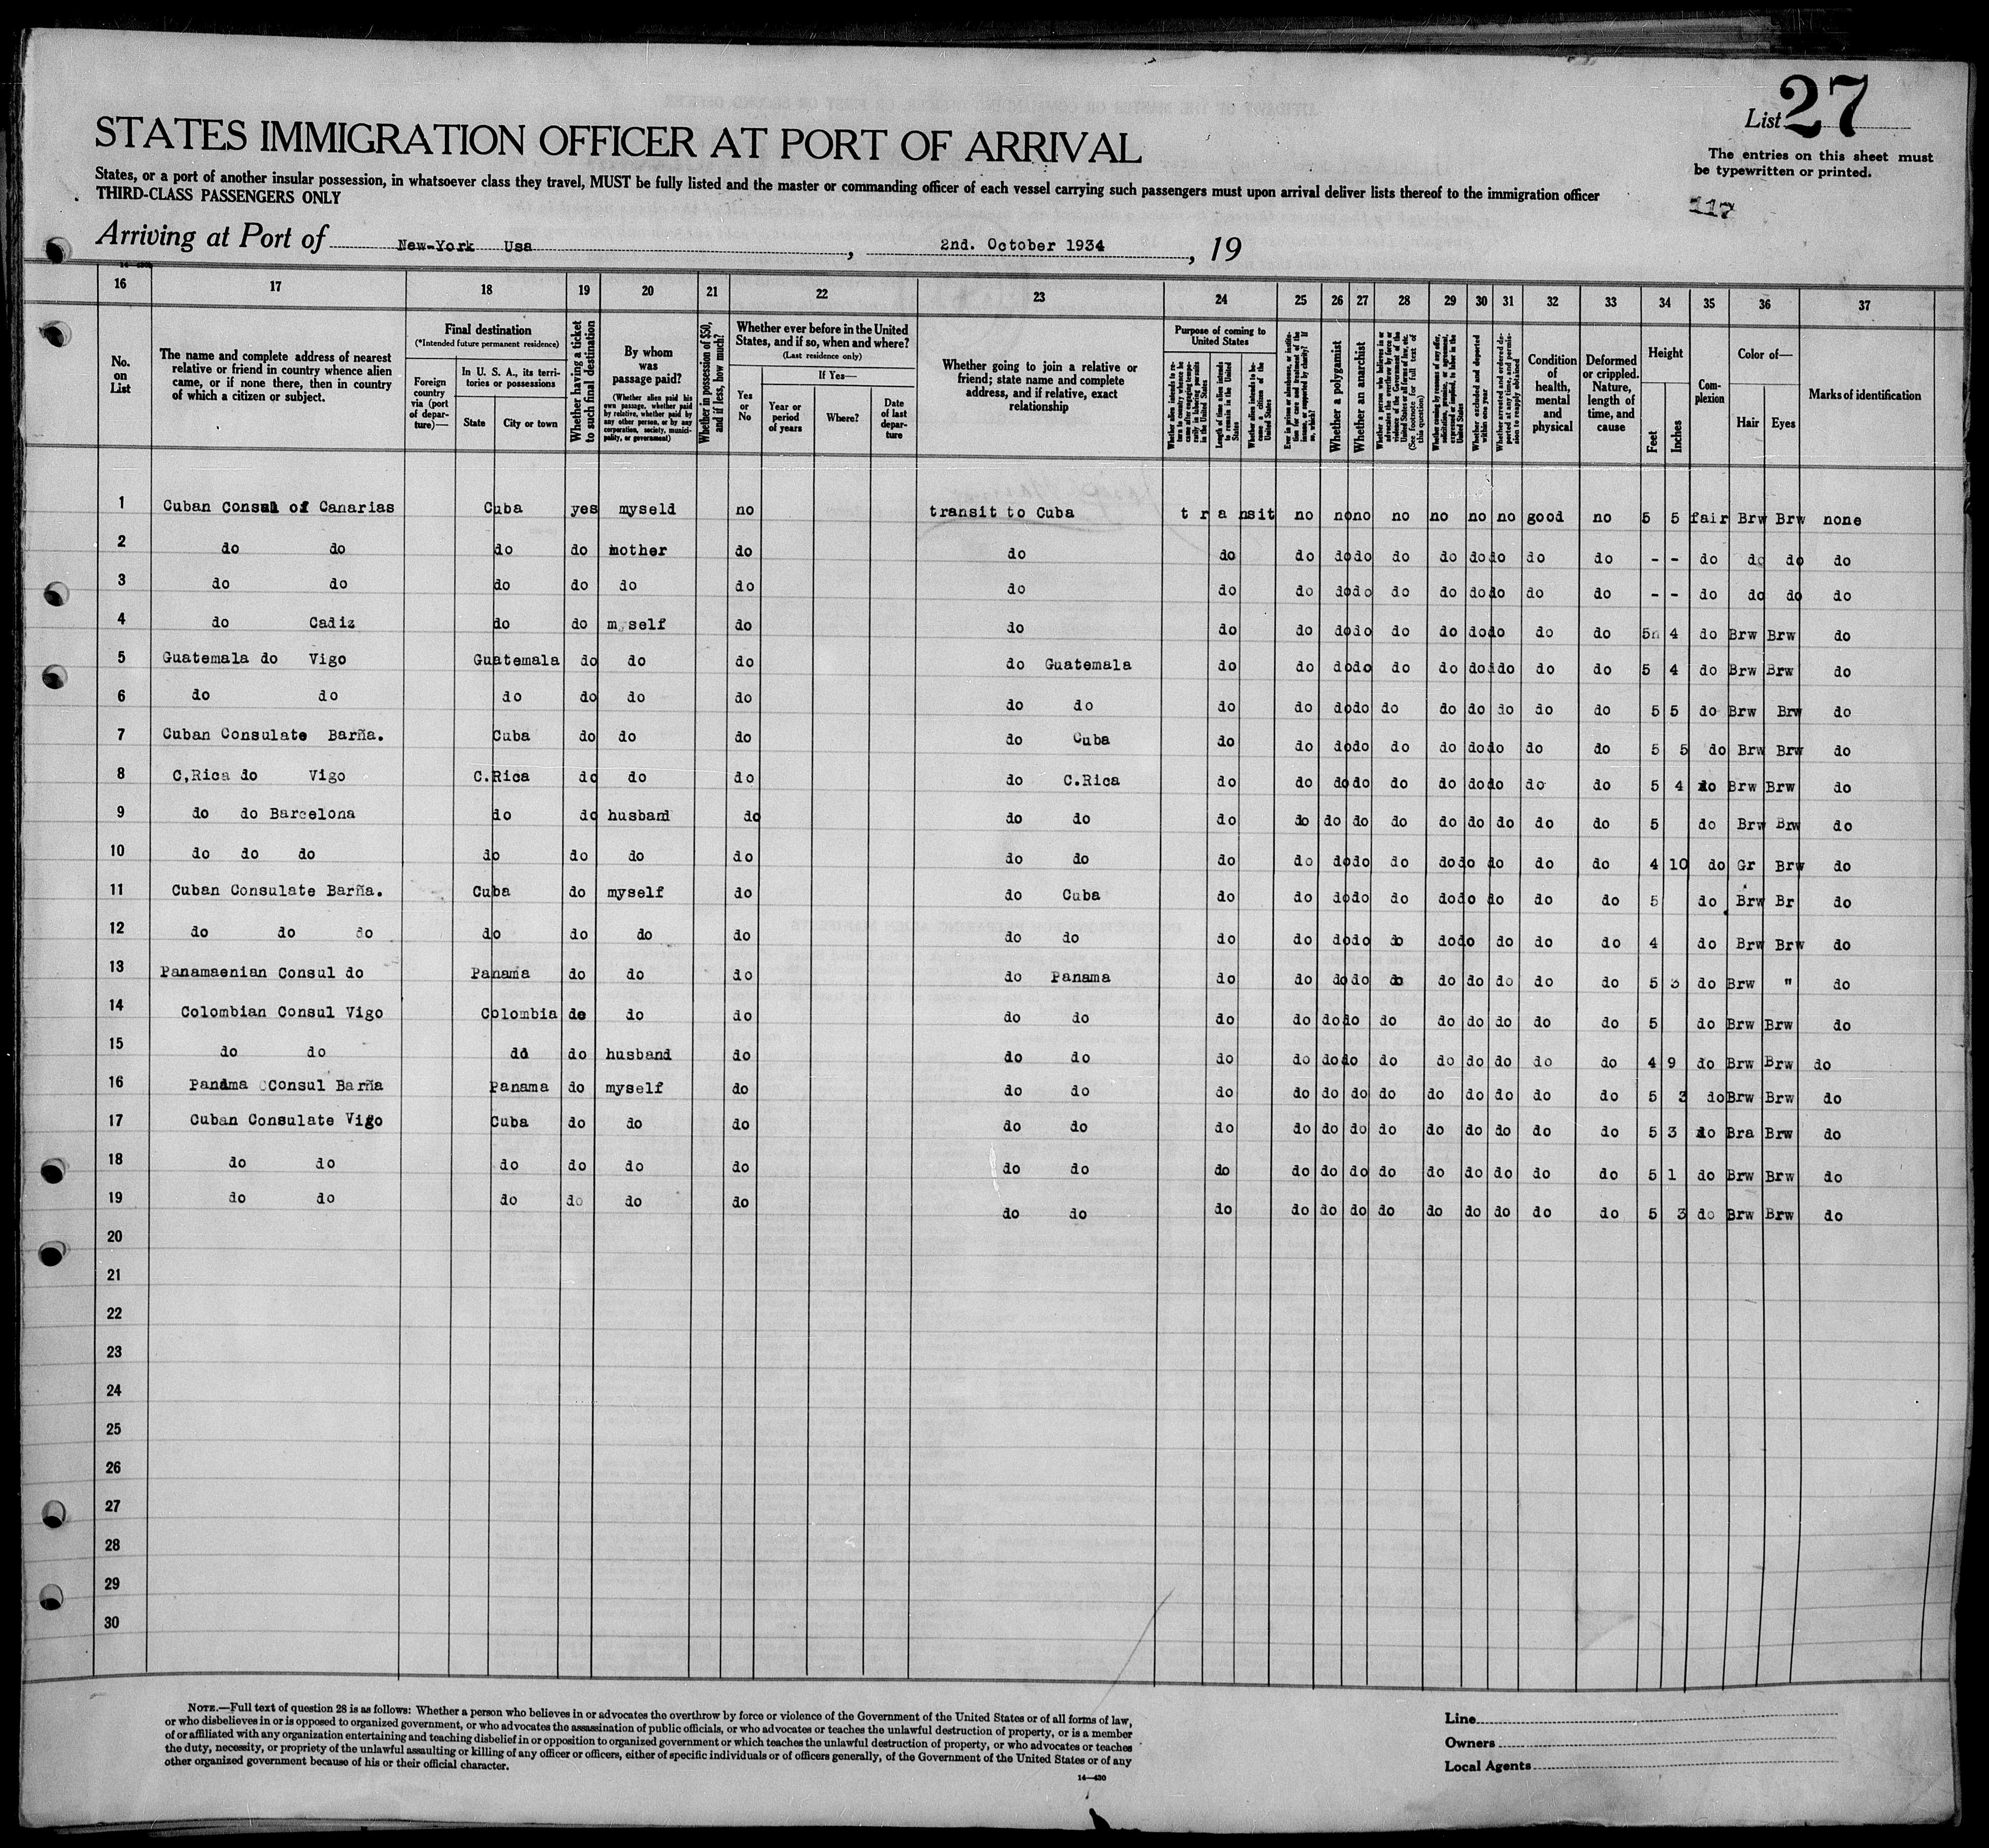 List 27
STATES IMMIGRATION OFFICER AT PORT OF ARRIVAL
The entries on this sheet must
be typewritten or printed.
States, or a port of another insular possession, in whatsoever class they travel, MUST be fully listed and the master or commanding officer of each vessel carrying such passengers must upon arrival deliver lists thereof to the immigration officer
THIRD-CLASS PASSENGERS ONLY
117
Arriving at Port of New-York Usa, 2nd. October 1934, 19
16 17 18 19 20 21 22 23 24 25 26 27 28 29 30 31 32 33 34 35 36 37
No. on List
The name and complete address of nearest relative or friend in country whence alien came, or if none there, then in country of which a citizen or subject.
Final destination
(*Intended future permanent residence)
Foreign country via (port of departure)—
In U. S. A., its territories or possessions
State
City or town
Whether having a ticket to such final destination
By whom was passage paid?
(Whether alien paid his own passage, whether paid by relative, whether paid by any other person, or by any corporation, society, municipality, or government)
Whether in possession of $50, and if less, how much?
Whether ever before in the United States, and if so, when and where?
(Last residence only)
Yes or No
If Yes—
Year or period of years
Where?
Date of last departure
Whether going to join a relative or friend; state name and complete address, and if relative, exact relationship
Purpose of coming to United States
Whether alien intends to return to country whence he came after engaging temporarily in laboring pursuits in the United States
Length of time alien intends to remain in the United States
Whether alien intends to become a citizen of the United States
Ever in prison or almshouse, or institution for care and treatment of the insane, or supported by charity? If so, which?
Whether a polygamist
Whether an anarchist
Whether a person who believes in or advocates the overthrow by force or violence of the Government of the United States or all forms of law, etc. (See footnote for full text of this question)
Whether coming by reason of any offer, solicitation, promise, or agreement, expressed or implied, to labor in the United States
Whether excluded and deported within one year
Whether arrested and ordered deported at any time, and permission to reapply obtained
Condition of health, mental and physical
Deformed or crippled. Nature, length of time, and cause
Height
Feet
Inches
Complexion
Color of—
Hair
Eyes
Marks of identification
1 Cuban Consul of Canarias Cuba yes myseld no transit to Cuba t r a nsit no no no no no no no good no 5 5 fair Brw Brw none
2 do do do do mother do do do do do do do do do do do do - - do do do do
3 do do do do do do do do do do do do do do do do do - - do do do do
4 do Cadiz do do m self do do do do do do do do do do do do 5n 4 do Brw Brw do
5 Guatemala do Vigo Guatemala do do do do Guatemala do do do do do do do do do do 5 4 do Brw Brw do
6 do do do do do do do do do do do do do do do do do do 5 5 do Brw Brw do
7 Cuban Consulate Barña. Cuba do do do do Cuba do do do do do do do do do do 5 5 do Brw Brw do
8 C,Rica do Vigo C.Rica do do do do C.Rica do do do do do do do do do do 5 4 do Brw Brw do
9 do do Barcelona do do husband do do do do do do do do do do do do do 5 do Brw Brw do
10 do do do do do do do do do do do do do do do do do do do 4 10 do Gr Brw do
11 Cuban Consulate Barña. Cuba do myself do do Cuba do do do do do do do do do do 5 do Brw Br do
12 do do do do do do do do do do do do do do do do do do do 4 do Brw Brw do
13 Panamaenian Consul do Panama do do do do Panama do do do do do do do do do do 5 3 do Brw " do
14 Colombian Consul Vigo Colombia de do do do do do do do do do do do do do do 5 do Brw Brw do
15 do do do do husband do do do do do do do do do do do do do 4 9 do Brw Brw do
16 Panama Consul Barña Panama do myself do do do do do do do do do do do do do 5 3 do Brw Brw do
17 Cuban Consulate Vigo Cuba do do do do do do do do do do do do do do do 5 3 do Bra Brw do
18 do do do do do do do do do do do do do do do do do do 5 1 do Brw Brw do
19 do do do do do do do do do do do do do do do do do do 5 3 do Brw Brw do
20
21
22
23
24
25
26
27
28
29
30
NOTE.—Full text of question 28 is as follows: Whether a person who believes in or advocates the overthrow by force or violence of the Government of the United States or of all forms of law,
or who disbelieves in or is opposed to organized government, or who advocates the assassination of public officials, or who advocates or teaches the unlawful destruction of property, or is a member
of or affiliated with any organization entertaining and teaching disbelief in or opposition to organized government or which teaches the unlawful destruction of property, or who advocates or teaches
the duty, necessity, or propriety of the unlawful assaulting or killing of any officer or officers, either of specific individuals or of officers generally, of the Government of the United States or of any
other organized government because of his or their official character.
14—430
Line
Owners
Local Agents